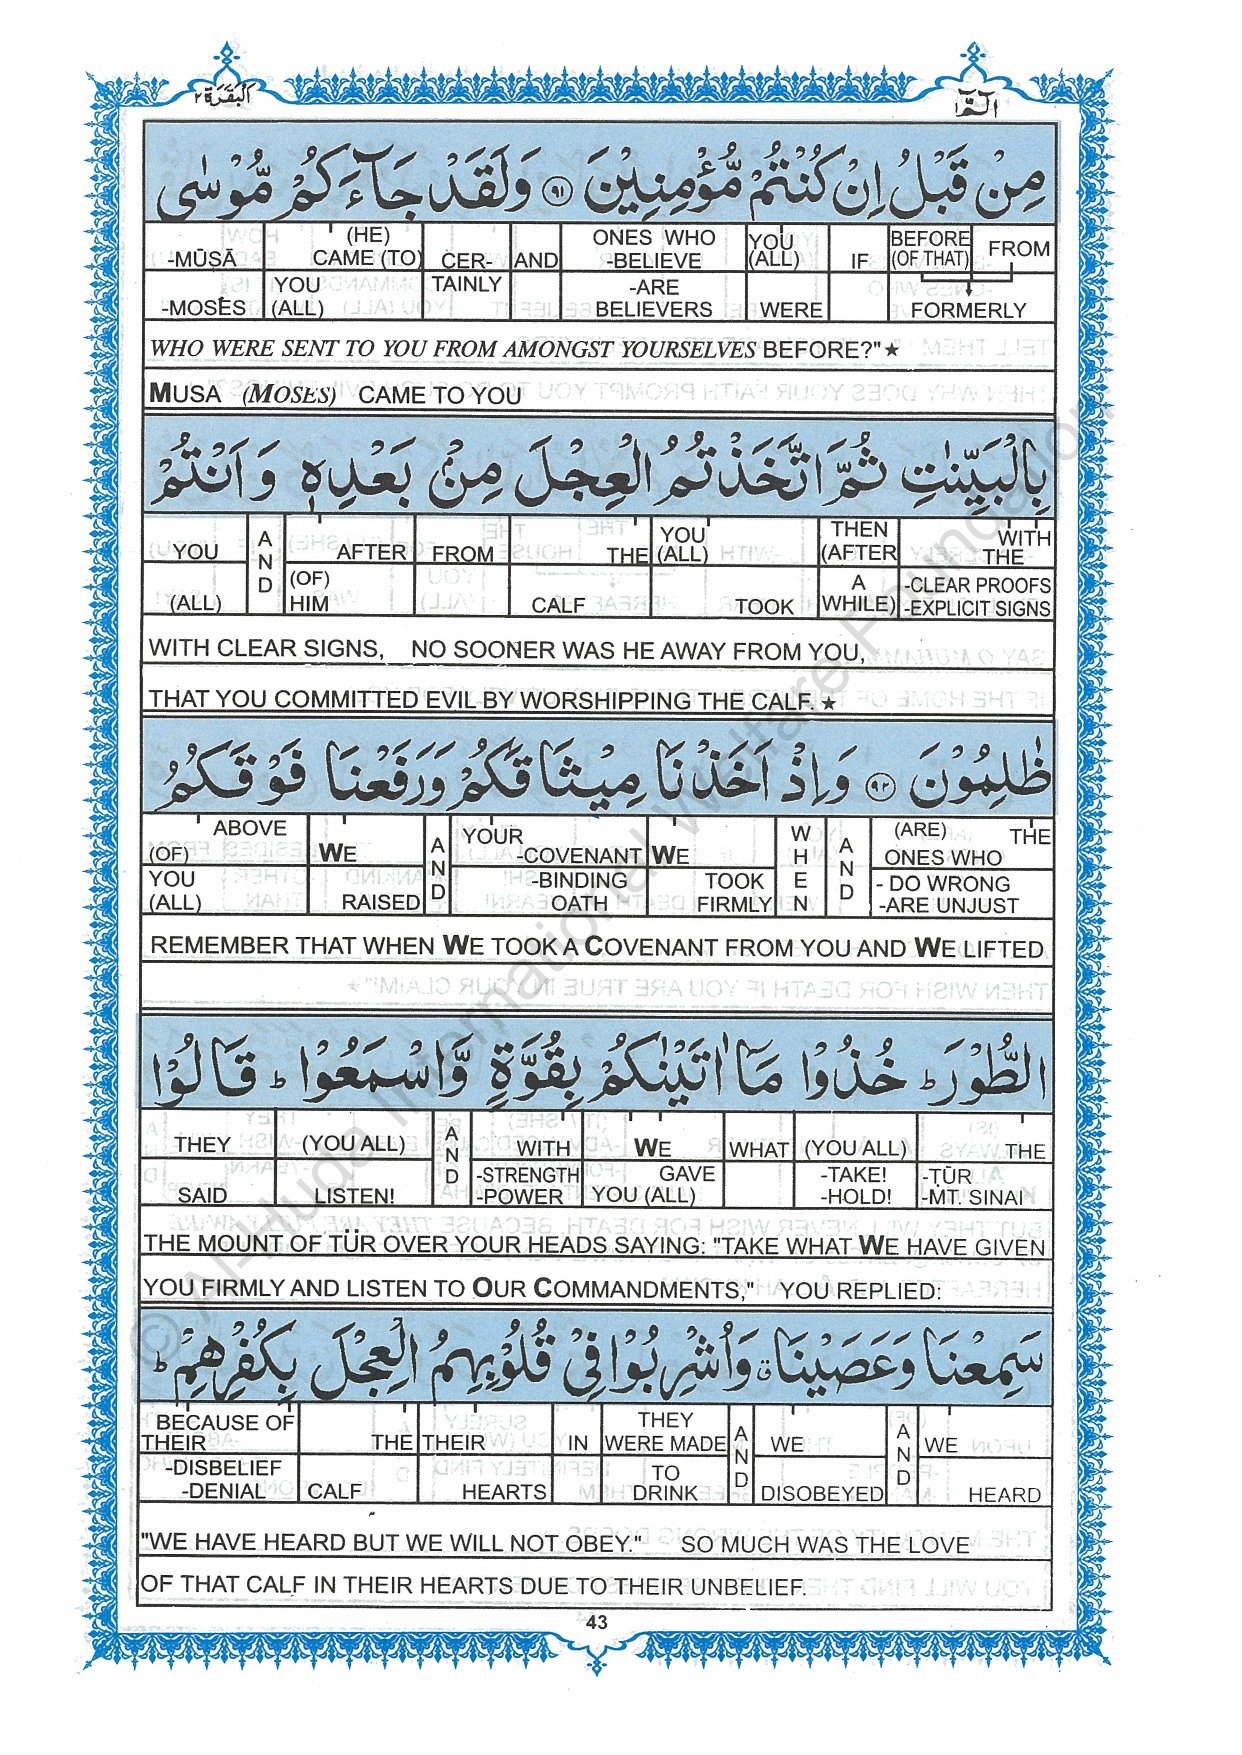 البقرة ٢
الٓمّٓ ١
مِنْ قَبْلُ اِنْ كُنْتُمْ مُّؤْمِنِيْنَ ﴿٩١﴾ وَلَقَدْ جَآءَكُمْ مُّوْسٰى
-MŪSĀ (HE) CAME (TO) CER- AND ONES WHO -BELIEVE YOU (ALL) IF BEFORE (OF THAT) FROM
-MOSES YOU (ALL) TAINLY -ARE BELIEVERS WERE FORMERLY
WHO WERE SENT TO YOU FROM AMONGST YOURSELVES BEFORE?"★
MUSA (MOSES) CAME TO YOU
بِالْبَيِّنٰتِ ثُمَّ اتَّخَذْتُمُ الْعِجْلَ مِنْۢ بَعْدِهٖ وَاَنْتُمْ
YOU AND AFTER FROM THE YOU (ALL) THEN (AFTER WITH THE
(ALL) (OF) HIM CALF TOOK A WHILE) -CLEAR PROOFS -EXPLICIT SIGNS
WITH CLEAR SIGNS, NO SOONER WAS HE AWAY FROM YOU,
THAT YOU COMMITTED EVIL BY WORSHIPPING THE CALF.★
ظٰلِمُوْنَ ﴿٩٢﴾ وَاِذْ اَخَذْنَا مِيْثَاقَكُمْ وَرَفَعْنَا فَوْقَكُمُ
ABOVE (OF) WE AND YOUR -COVENANT WE WHE AND (ARE) ONES WHO THE
YOU (ALL) RAISED -BINDING OATH TOOK FIRMLY - DO WRONG -ARE UNJUST
REMEMBER THAT WHEN WE TOOK A COVENANT FROM YOU AND WE LIFTED
الطُّوْرَ ؕ خُذُوْا مَآ اٰتَيْنٰكُمْ بِقُوَّةٍ وَّاسْمَعُوْا ؕ قَالُوْا
THEY (YOU ALL) AND WITH WE WHAT (YOU ALL) THE
SAID LISTEN! -STRENGTH -POWER GAVE YOU (ALL) -TAKE! -HOLD! -ṬŪR -MT. SINAI
THE MOUNT OF TŪR OVER YOUR HEADS SAYING: "TAKE WHAT WE HAVE GIVEN
YOU FIRMLY AND LISTEN TO OUR COMMANDMENTS," YOU REPLIED:
سَمِعْنَا وَعَصَيْنَا ۗ وَاُشْرِبُوْا فِيْ قُلُوْبِهِمُ الْعِجْلَ بِكُفْرِهِمْ ؕ
BECAUSE OF THEIR THE THEIR IN THEY WERE MADE AND WE AND WE
-DISBELIEF -DENIAL CALF HEARTS TO DRINK DISOBEYED HEARD
"WE HAVE HEARD BUT WE WILL NOT OBEY." SO MUCH WAS THE LOVE
OF THAT CALF IN THEIR HEARTS DUE TO THEIR UNBELIEF.
43
© Al-Huda International Welfare Foundation